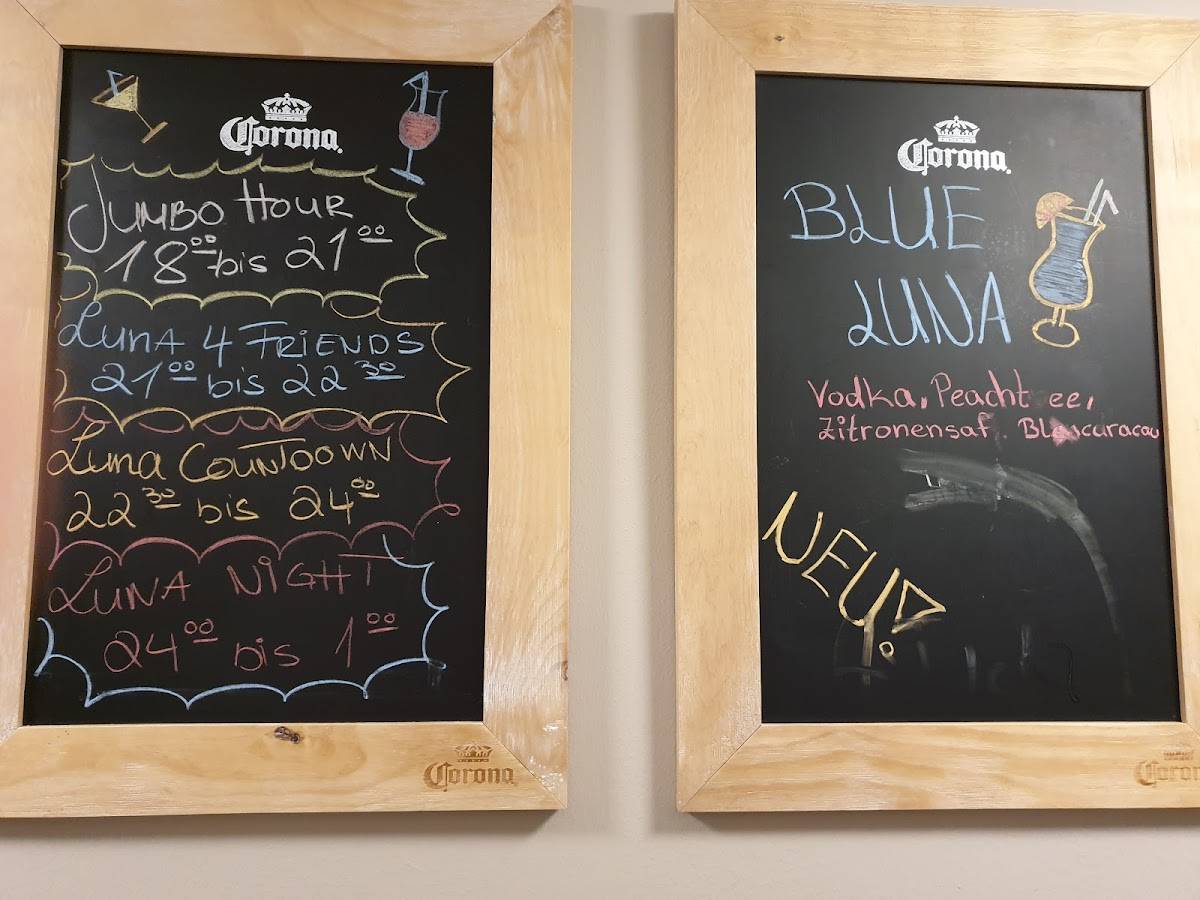 Corona.
JUMBO HOUR
18⁰⁰ bis 21⁰⁰
LUNA 4 FRIENDS
21⁰⁰ bis 22³⁰
Luna COUNTDOWN
22³⁰ bis 24⁰⁰
LUNA NIGHT
24⁰⁰ bis 1⁰⁰
Corona
Corona.
BLUE
LUNA
Vodka, Peacht ee,
Zitronensaf
NEU!
Corona